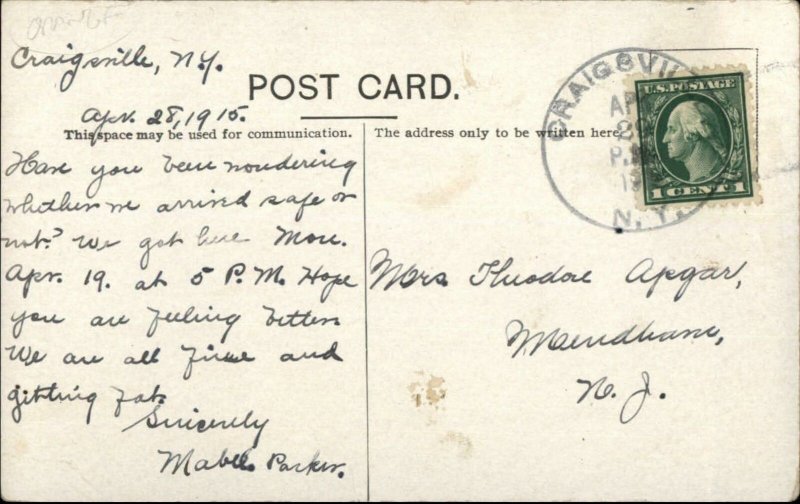 Craigsville, N.Y.
POST CARD.
Apr. 28, 1915.
This space may be used for communication.
Have you been wondering
whether we arrived safe or
not? We got here Mon.
Apr. 19. at 5 P.M. Hope
you are feeling better.
We are all fine and
gitting fat.
Sincerely
Mabel Parker.
The address only to be written here
CRAIGSVIL
AP
28
P.M
19
N.Y.
U.S. POSTAGE
1 CENT 1
Mrs Theodore Apgar,
Mendham,
N. J.